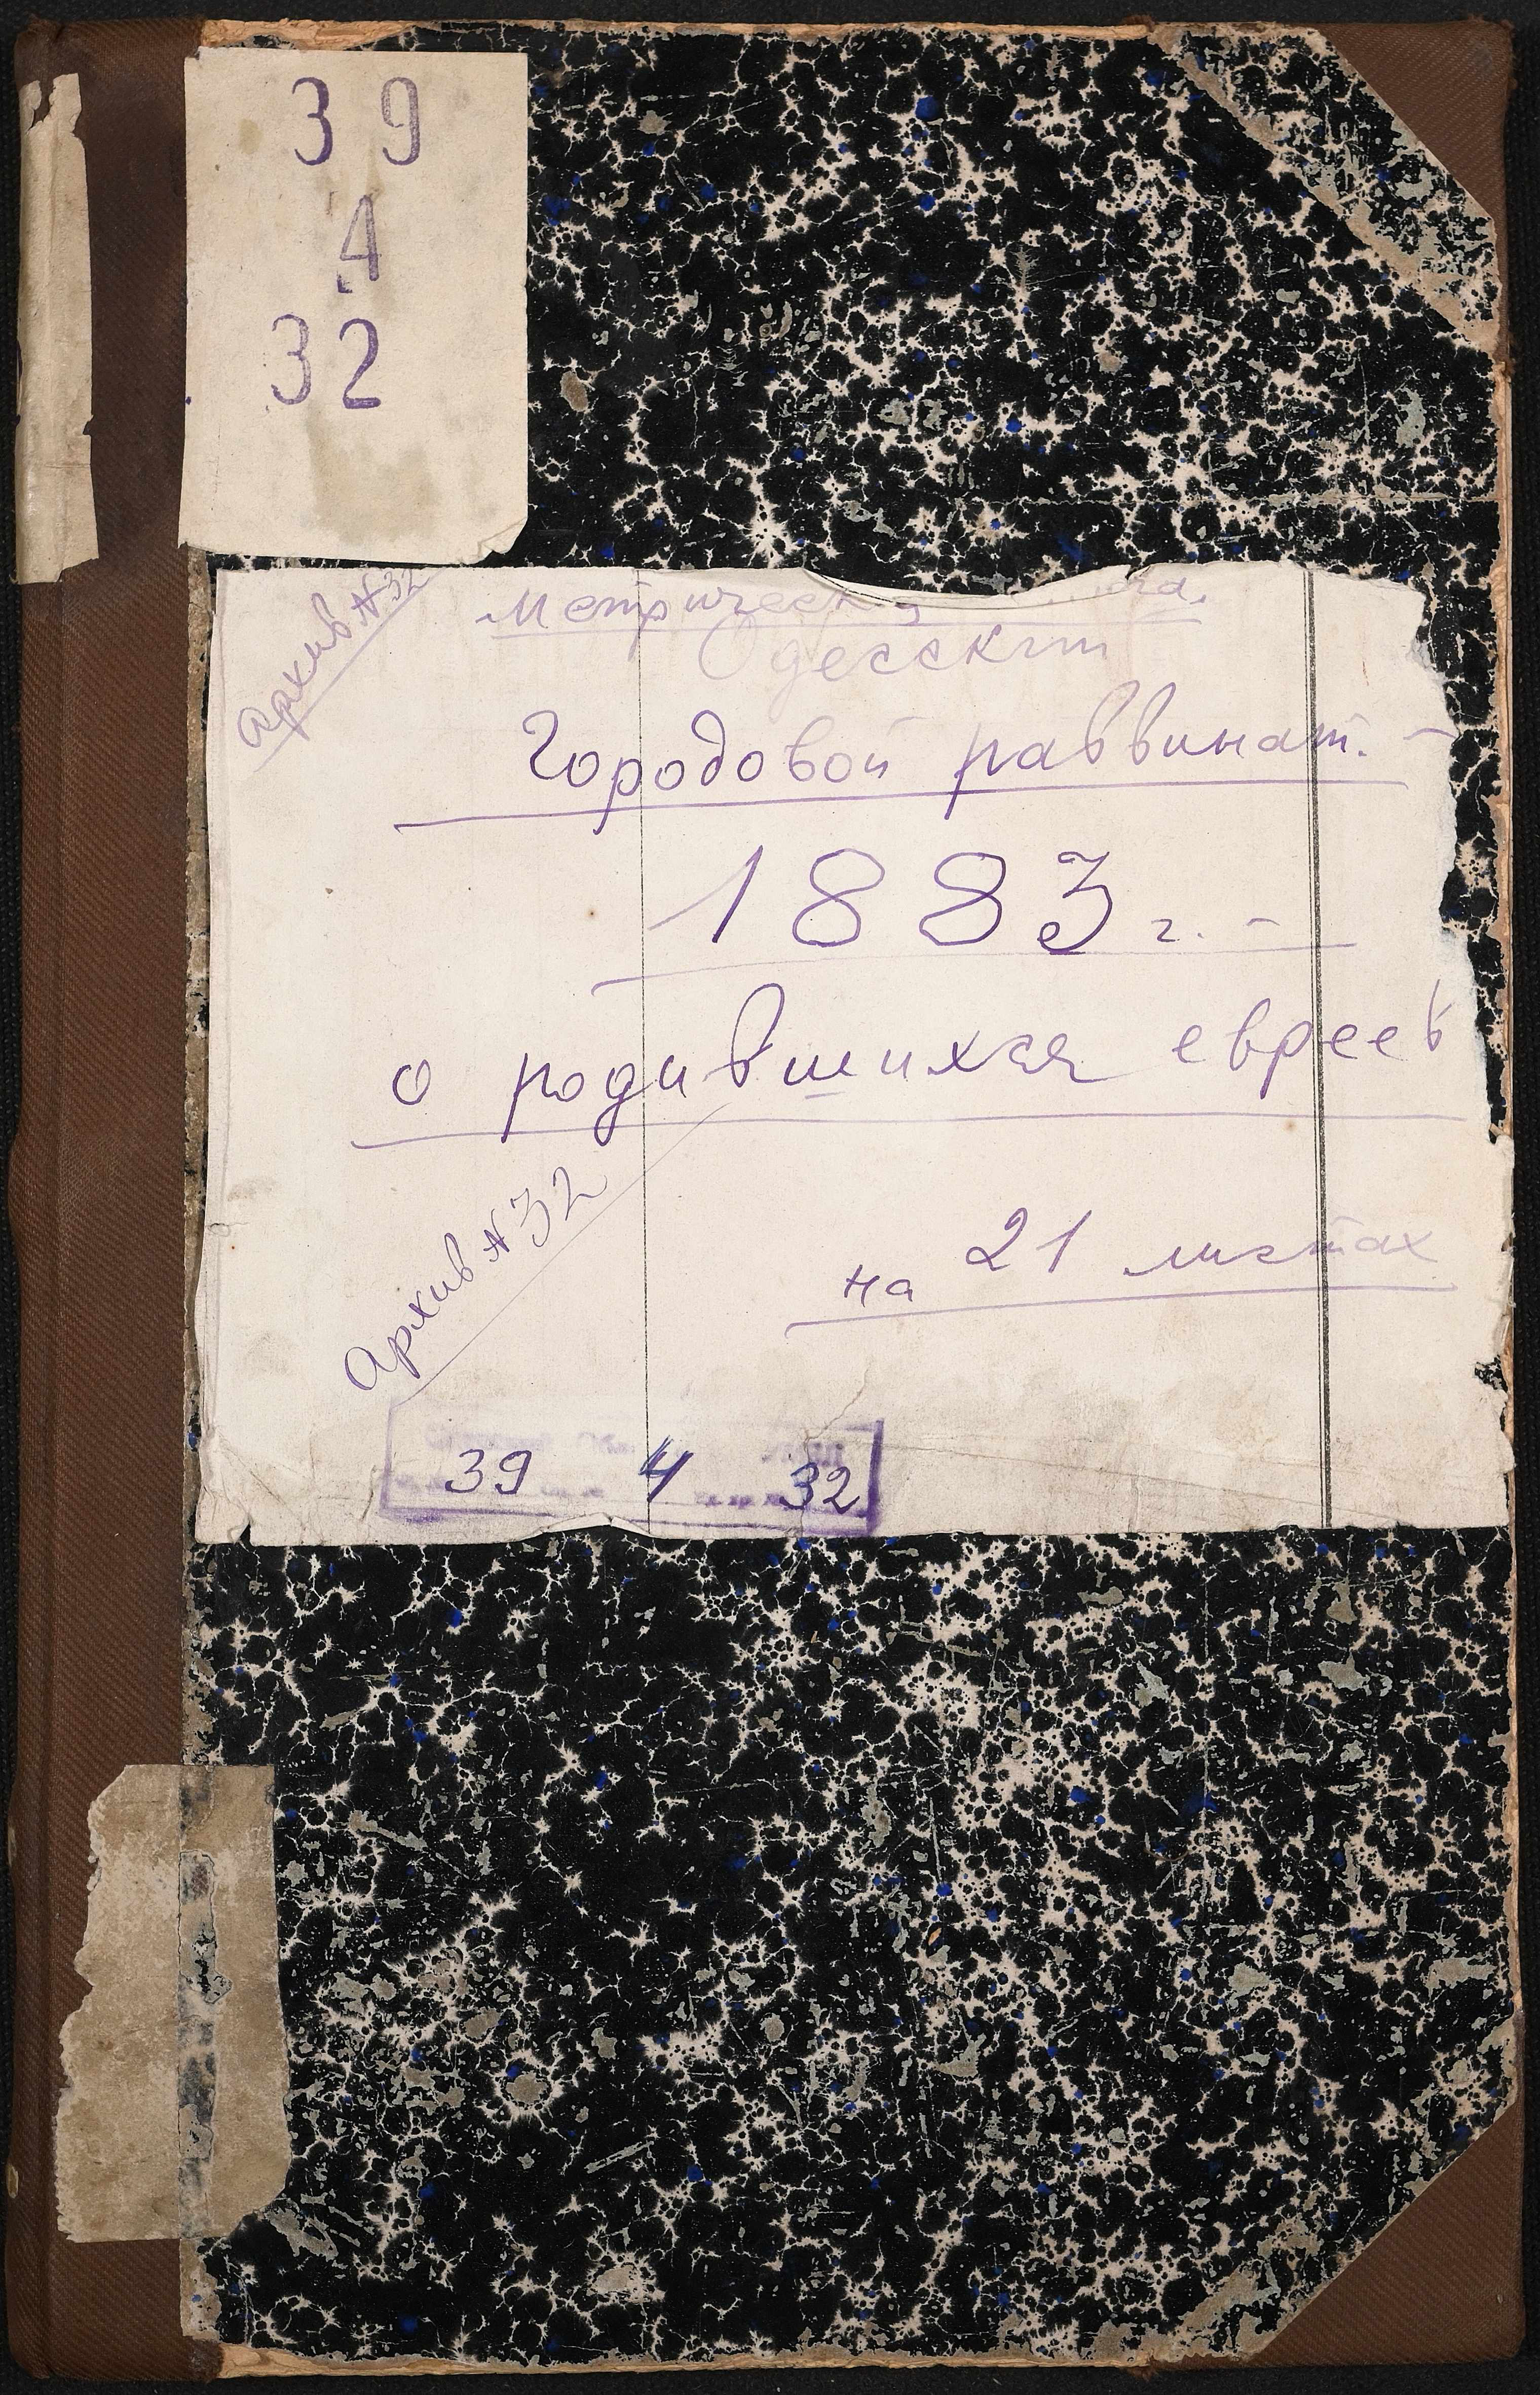 39
4
32
Архив №32
Метрическая
Одесский
Городовой раввинат. -
1883 г. -
о родившихся евреев
Архив №32
на 21 листах
39 4 32